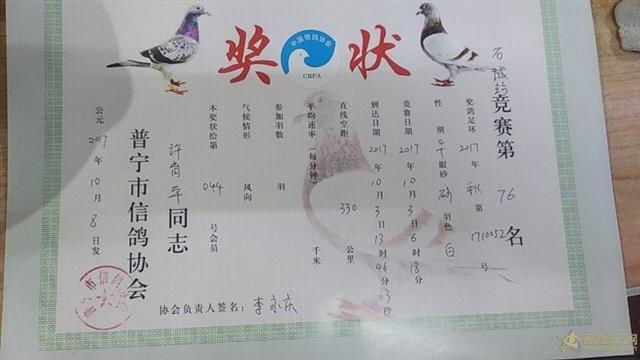 奖 状
中国信鸽协会
CRPA
石城 竞赛第76名
奖鸽足环2017年秋第1710052号
性别 眼砂 砂 羽色 白
竞赛日期2017年10月3日6时18分
到达日期2017年10月3日13时46分03秒
直线空距330公里
平均速率(每分钟) 千米
参加羽数 羽
气候情形 风向
本奖状给第044号会员
许 平同志
普宁市信鸽协会
公元2017年10月8日发
协会负责人签名:李永庆